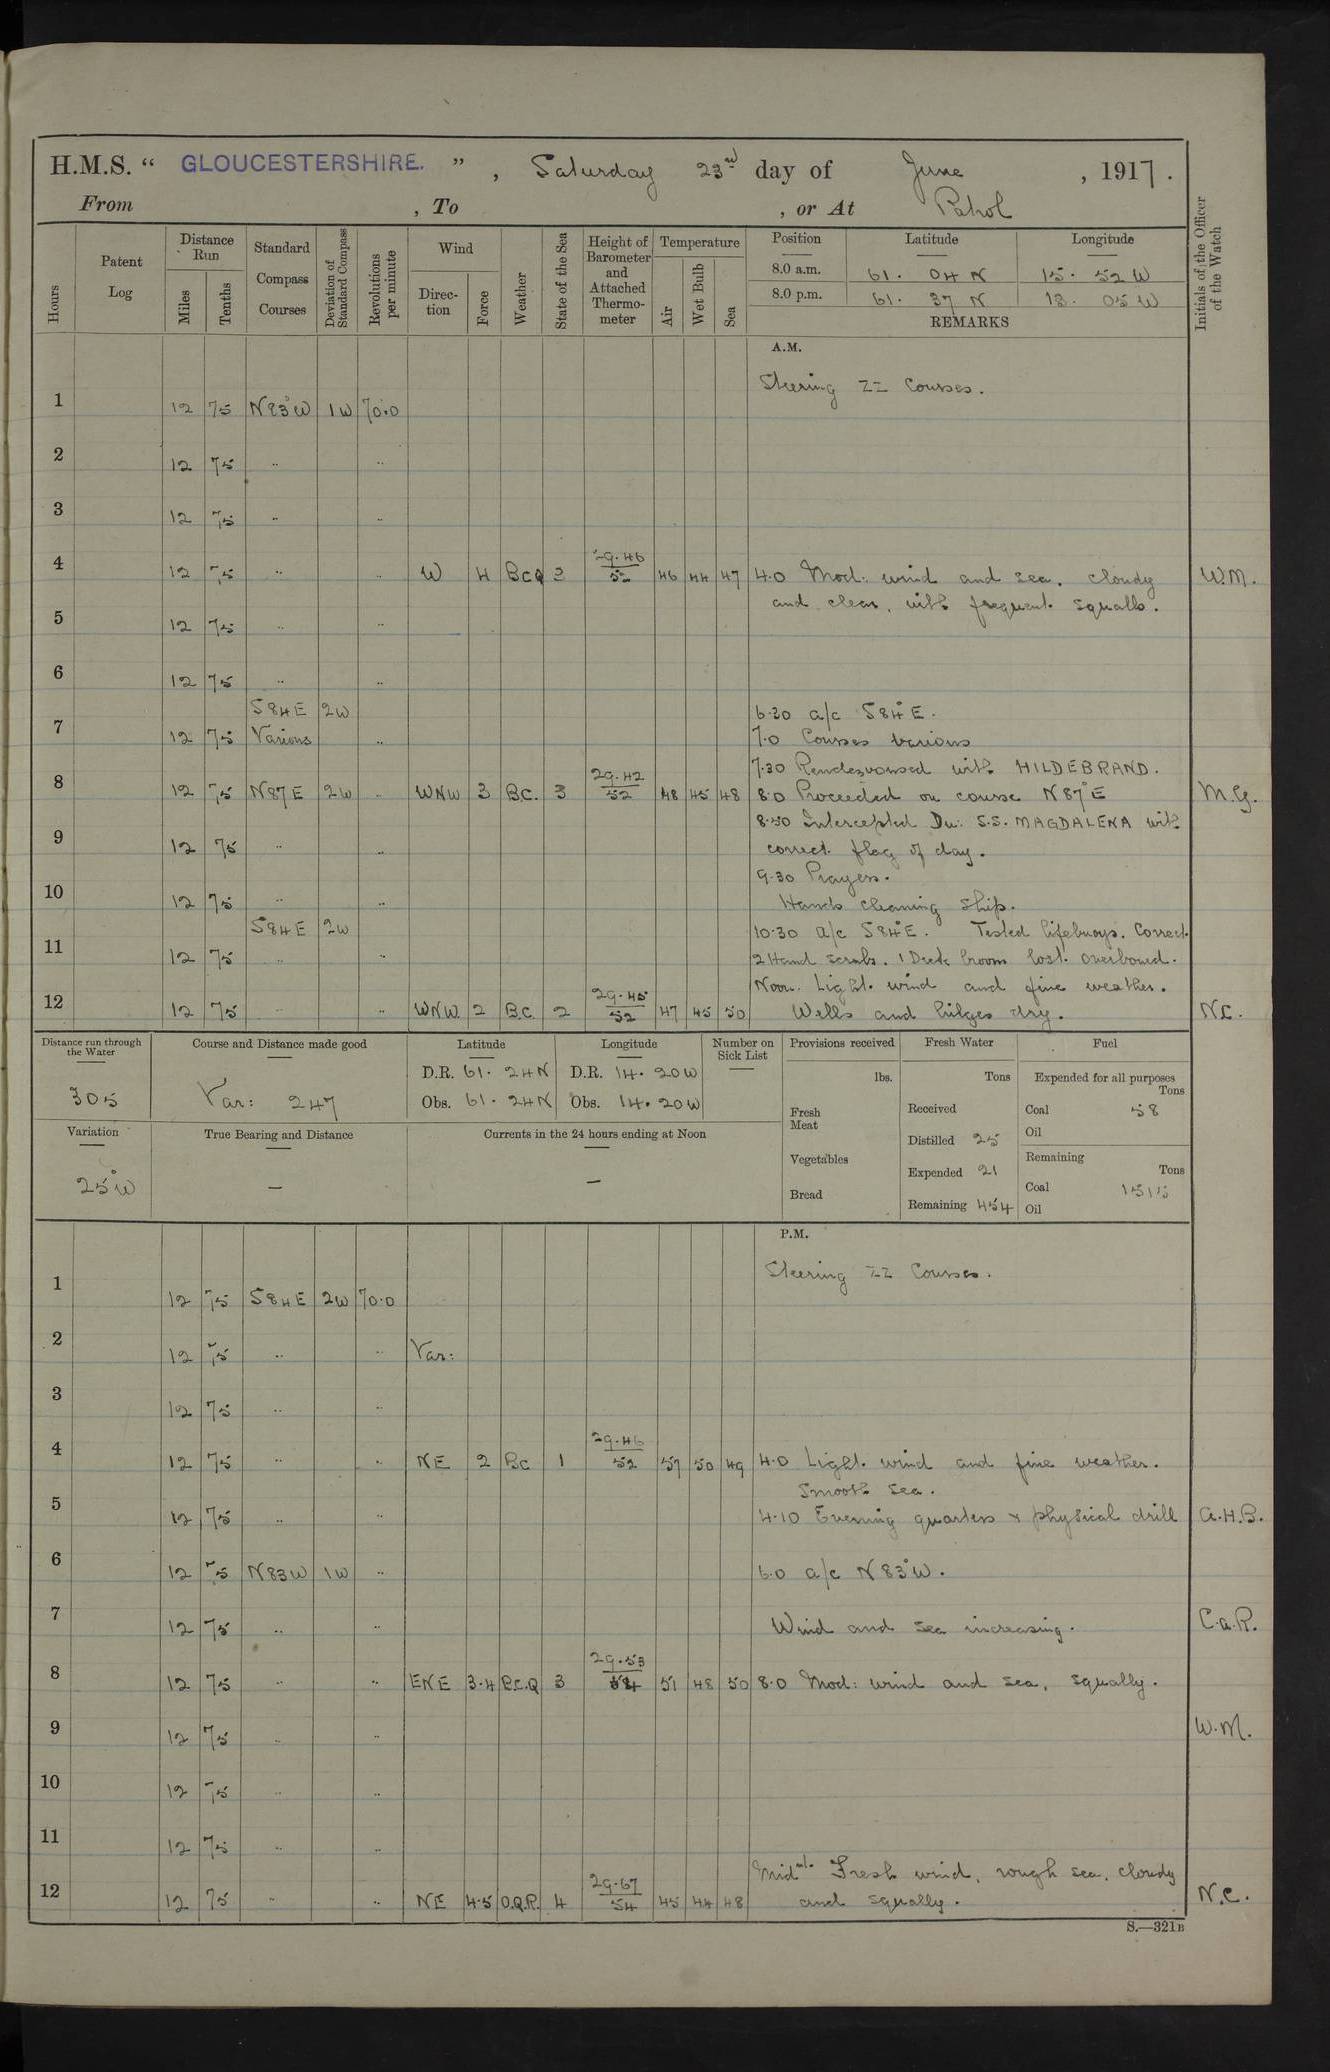 H.M.S. “ GLOUCESTERSHIRE. ” , Saturday 23rd day of June , 1917.
From , To , or At Patrol
Hours Patent Log Distance Run Miles Tenths Standard Compass Courses Deviation of Standard Compass Revolutions per minute Wind Direction Force Weather State of the Sea Height of Barometer and Attached Thermometer Temperature Air Wet Bulb Sea Position Latitude Longitude Initials of the Officer of the Watch
8.0 a.m. 61. 04 N 15. 52 W
8.0 p.m. 61. 37 N 13. 05 W
REMARKS
A.M.
Steering ZZ Courses.
1 12 75 N83°W 1W 70.0
2 12 75 .. ..
3 12 75 .. ..
4 12 75 .. .. W 4 BCQ 3 29.46/52 46 44 47 4.0 Mod: wind and sea. cloudy W.M.
and clear, with frequent squalls.
5 12 75 .. ..
6 12 75 .. ..
S84E 2W 6.30 a/c S84°E.
7 12 75 Various .. 7.0 Courses various
7.30 Rendezvoused with HILDEBRAND.
8 12 75 N87E 2W .. WNW 3 B.C. 3 29.42/52 48 45 48 8.0 Proceeded on course N87°E M.G.
8.50 Intercepted Du: S.S. MAGDALENA with
9 12 75 .. .. correct flag of day.
9.30 Prayers.
10 12 75 .. .. Hands cleaning ship.
S84E 2W 10.30 a/c S84°E. Tested lifebuoys. Correct.
11 12 75 .. .. 2 Hand scrubs. 1 Deck broom lost overboard.
Noon. Light wind and fine weather.
12 12 75 .. .. WNW 2 B.C. 2 29.45/52 47 45 50 Wells and bilges dry. N.C.
Distance run through the Water 305
Course and Distance made good Var: 247
Latitude D.R. 61. 24N Obs. 61. 24N
Longitude D.R. 14. 20W Obs. 14. 20W
Number on Sick List
Provisions received lbs. Fresh Meat Vegetables Bread
Fresh Water Tons Received Distilled 25 Expended 21 Remaining 454
Fuel Expended for all purposes Tons Coal 58 Oil Remaining Tons Coal 1515 Oil
Variation 25°W
True Bearing and Distance —
Currents in the 24 hours ending at Noon —
P.M.
Steering ZZ Courses.
1 12 75 S84E 2W 70.0
2 12 75 .. .. Var:
3 12 75 .. ..
4 12 75 .. .. NE 2 BC 1 29.46/52 57 50 49 4.0 Light wind and fine weather.
Smooth sea.
5 12 75 .. .. 4.10 Evening quarters & physical drill A.H.B.
6 12 75 N83W 1W .. 6.0 a/c N83°W.
7 12 75 .. .. Wind and sea increasing. C.a.R.
8 12 75 .. .. ENE 3.4 B.C.Q 3 29.53/54 51 48 50 8.0 Mod: wind and sea, squally.
9 12 75 .. .. W.M.
10 12 75 .. ..
11 12 75 .. ..
Midnt. Fresh wind, rough sea, cloudy
12 12 75 .. .. NE 4.5 O.Q.R. 4 29.67/54 45 44 48 and squally. N.C.
S.—321B